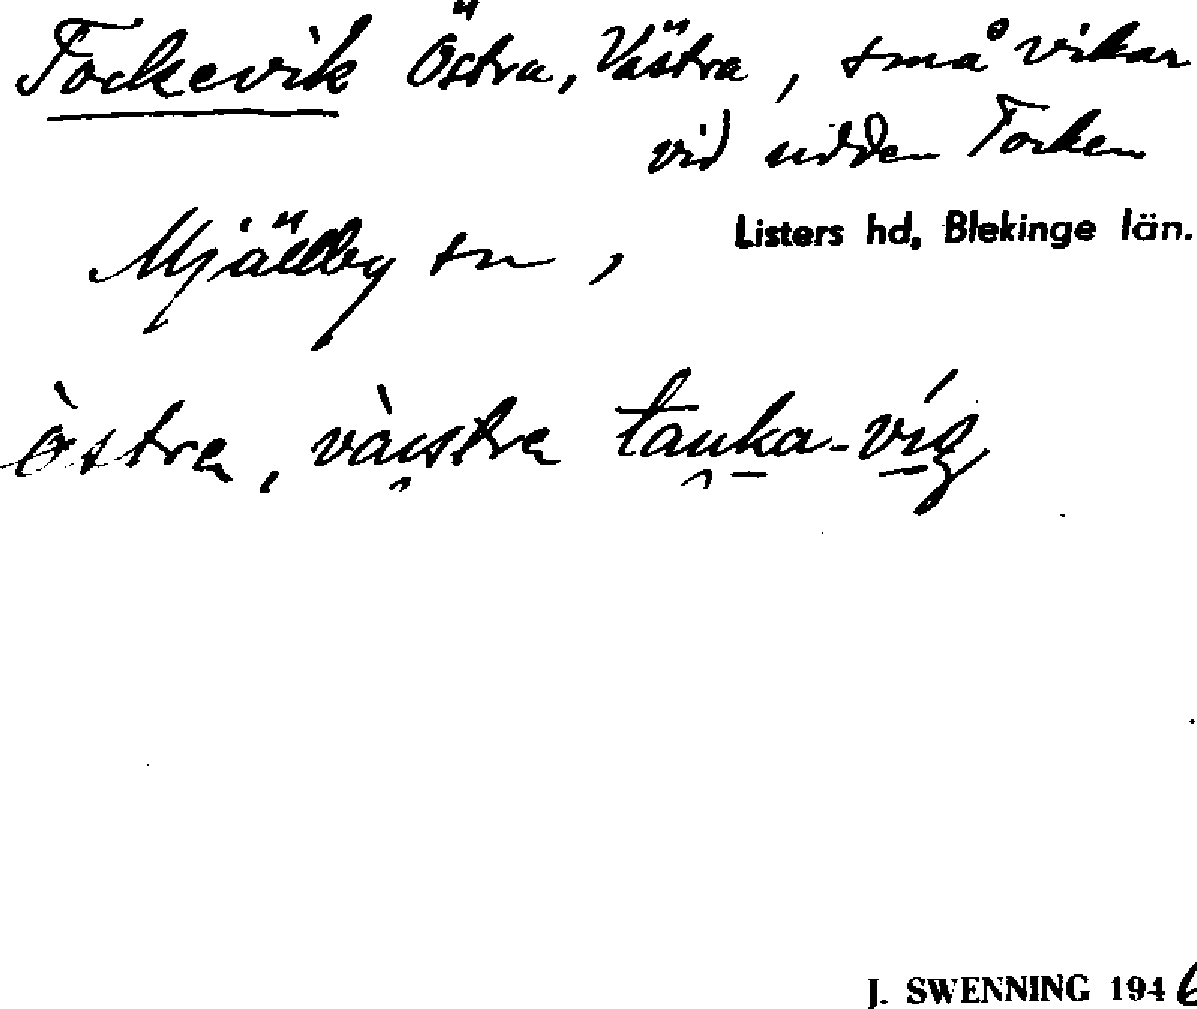 Tockevik Östra, Västra, små vikar
vid udden Tocken
Mjällby sn, Listers hd, Blekinge län.
östra, västra tauka-vig
J. SWENNING 1946